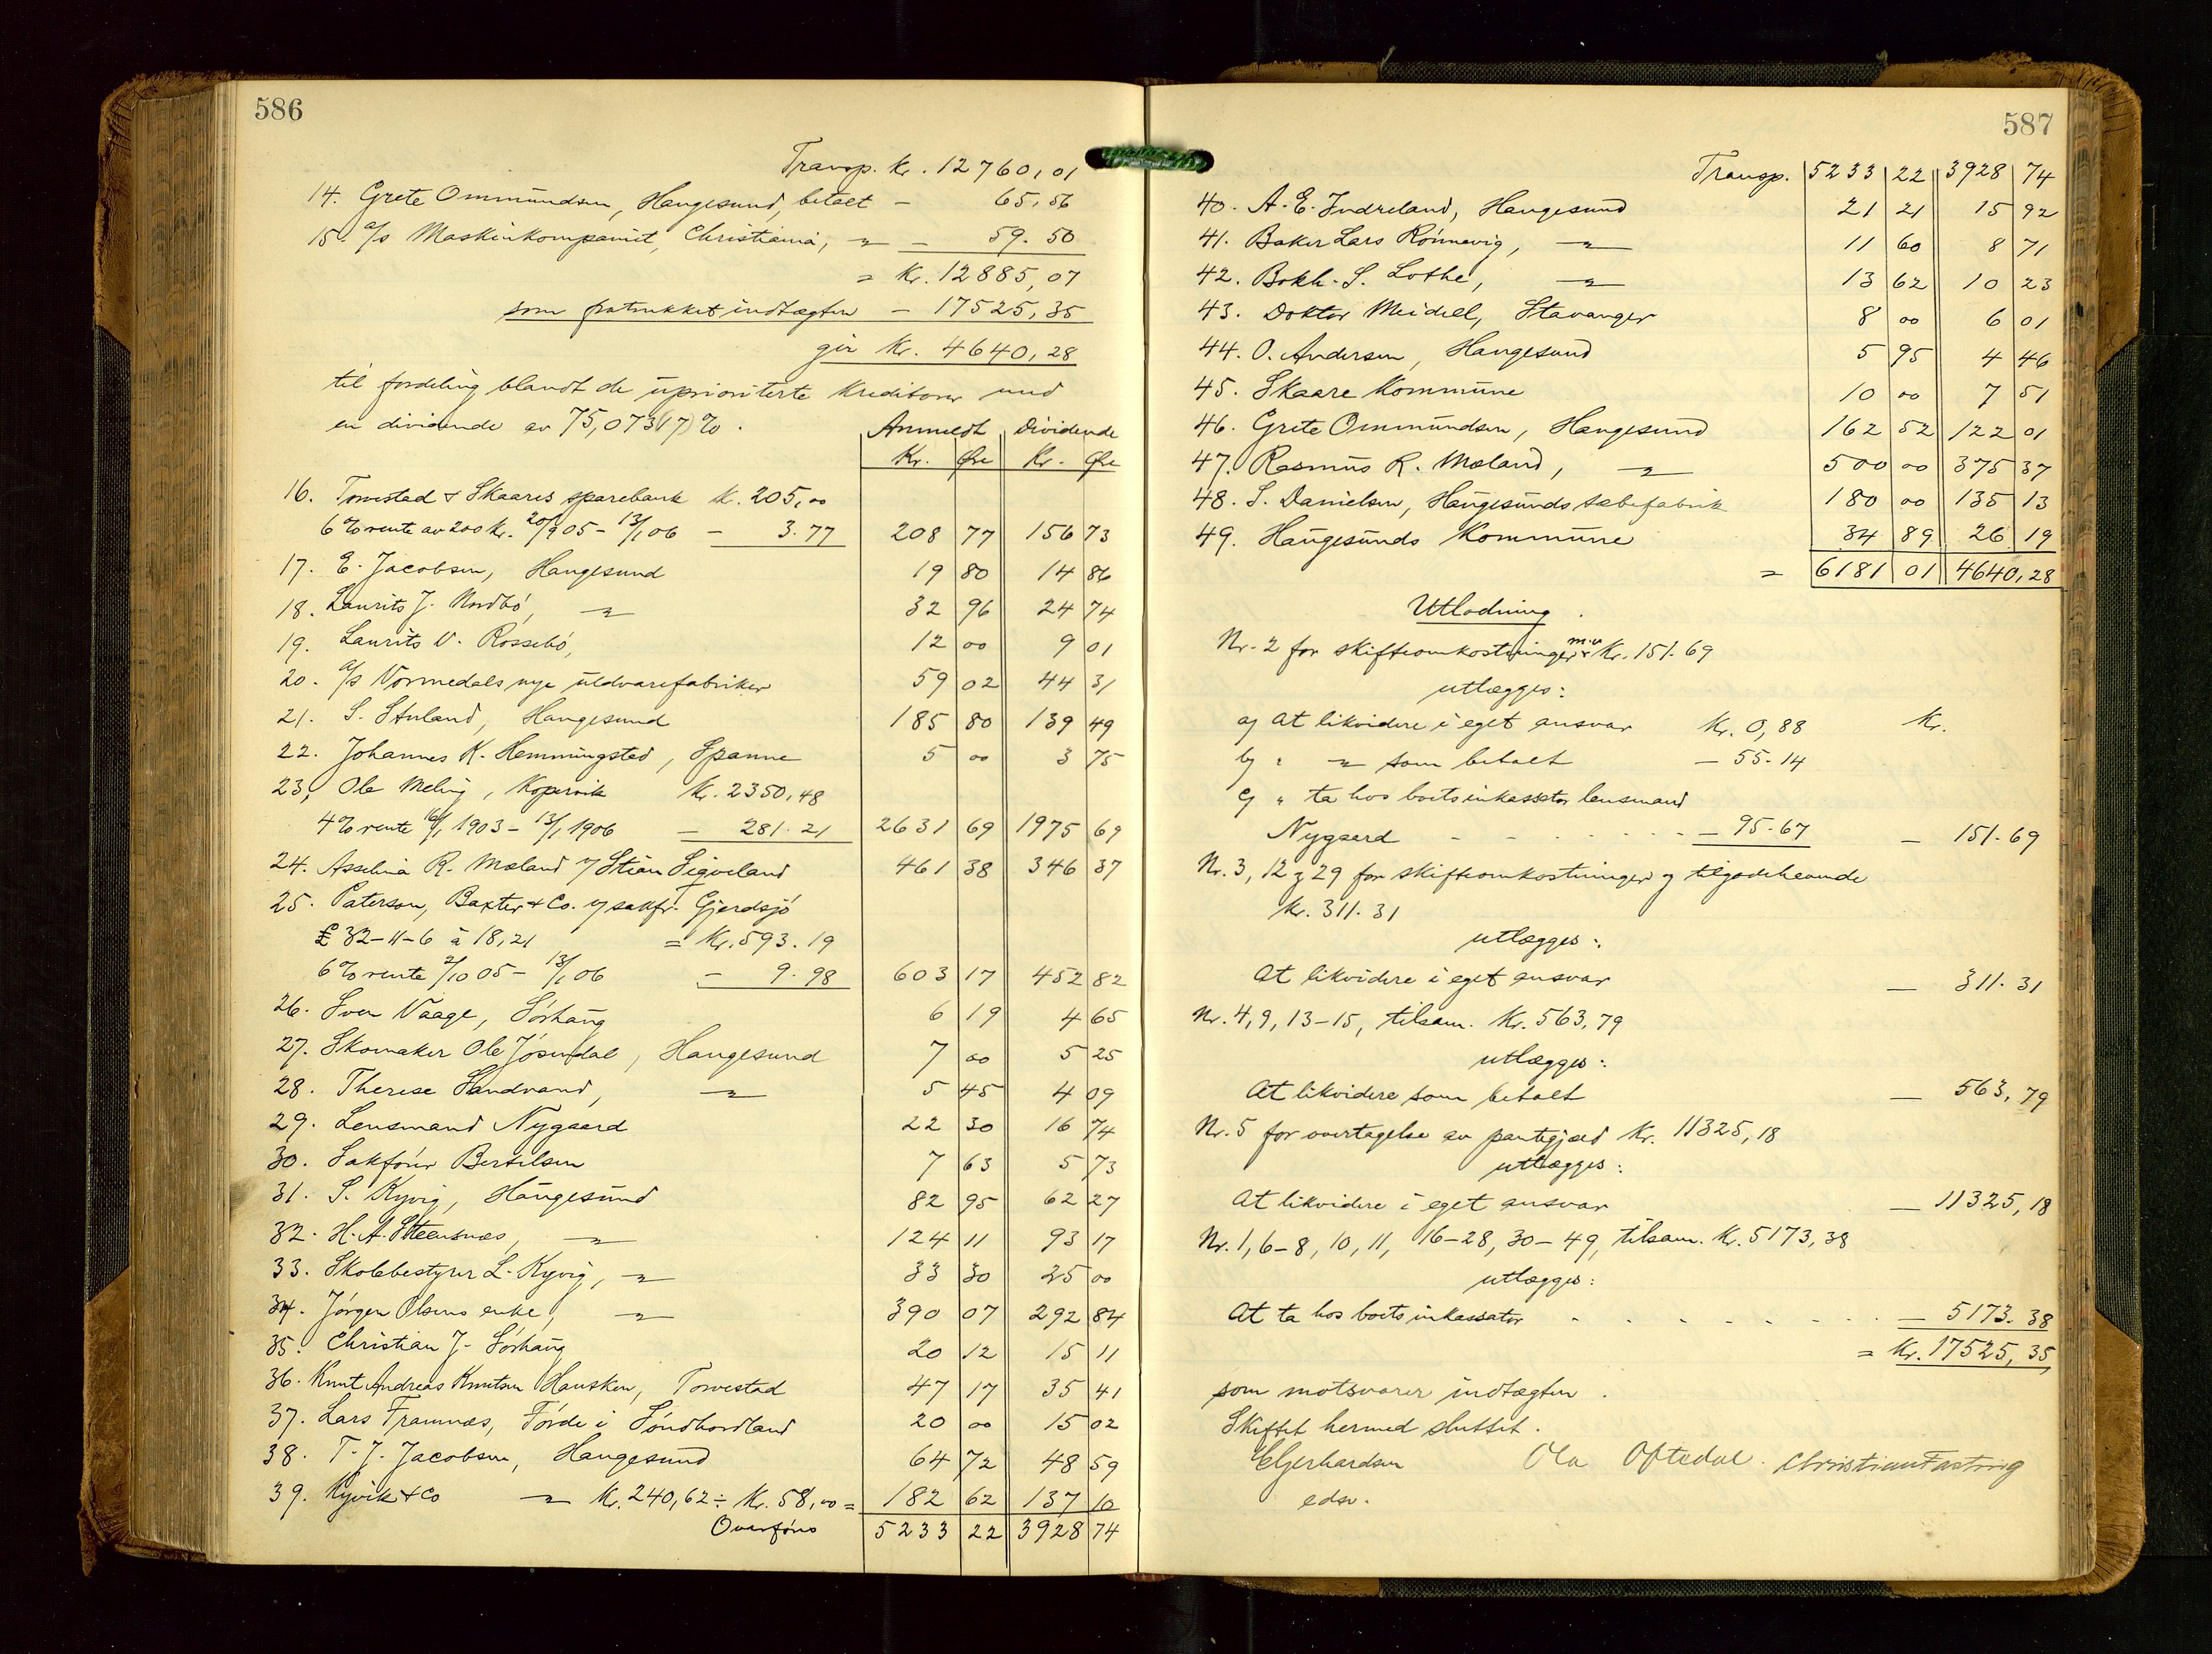 586
Transp. Kr. 12760,01
14. Grete Ommundsen, Haugesund, betalt – 65,56
15. a/s Maskinkompaniet, Christiania, –"– – 59.50
= Kr. 12885,07
som fratrukket indtægten – 17525,35
gir Kr. 4640,28
til fordeling blandt de uprioriterte kreditorer med
en dividende av 75,073(17)%.
Anmeldt Dividende
Kr. Øre Kr. Øre
16. Torvestad & Skaares sparebank Kr. 205,00
6% rente av 200 kr. 20/9 05 – 13/1 06 – 3.77 208 77 156 73
17. E. Jacobsen, Haugesund 19 80 14 86
18. Laurits J. Nordbó, –"– 32 96 24 74
19. Laurits V. Rossebó, 12 00 9 01
20. a/s Vormedals nye uldvarefabriker 59 02 44 31
21. S. Stuland, Haugesund 185 80 139 49
22. Johannes K. Hemmingstad, Spanne 5 00 3 75
23, Ole Meling, Kopervik Kr. 2350,48
4% rente 16/1 1903 – 13/1 1906 – 281.21 2631 69 1975 69
24. Asselina R. Mæland v/ Stian Sigveland 461 38 346 37
25. Paterson, Baxter & Co. v/ sakfr. Gjerdsjó
£ 32-11-6 à 18,21 = Kr. 593.19
6% rente 2/10 05 – 13/1 06 – 9.98 603 17 452 82
26. Sven Vaage, Sórhaug 6 19 4 65
27. Skomaker Ole Jósendal, Haugesund 7 00 5 25
28. Therese Sandvand, –"– 5 45 4 09
29. Lensmand Nygaard 22 30 16 74
30. Sakfórer Bertilsen 7 63 5 73
31. S. Kyvig, Haugesund 82 95 62 27
32. H. A. Steensnæs, –"– 124 11 93 17
33. Skolebestyrer L. Kyvig, –"– 33 30 25 00
34. Jórgen Olsens enke, –"– 390 07 292 84
35. Christian J. Sórhaug 20 12 15 11
36. Knut Andreas Knutsen Hausken, Torvestad 47 17 35 41
37. Lars Framnæs, Fórde i Sóndhordland 20 00 15 02
38. T. J. Jacobsen, Haugesund 64 72 48 59
39. Kyvik & Co –"– Kr. 240,62 ÷ Kr. 58,00 = 182 62 137 10
Overfóres 5233 22 3928 74
587
Transp. 5233 22 3928 74
40. A. E. Indreland, Haugesund 21 21 15 92
41. Baker Lars Rónnevig, –"– 11 60 8 71
42. Bokh. S. Lothe, –"– 13 62 10 23
43. Doktor Meidell, Stavanger 8 00 6 01
44. O. Andersen, Haugesund 5 95 4 46
45. Skaare Kommune 10 00 7 51
46. Grete Ommundsen, Haugesund 162 52 122 01
47. Rasmus R. Mæland, –"– 500 00 375 37
48. S. Danielsen, Haugesunds sæbefabrik 180 00 135 13
49. Haugesunds Kommune 34 89 26 19
= 6181 01 4640,28
Utlodning.
Nr. 2 for skifteomkostninger m.v. Kr. 151.69
utlægges:
a) At likvidere i eget ansvar Kr. 0,88 Kr.
b) " –"– som betalt – 55.14
c) " ta hos boets inkassator lensmand
Nygaard – 95.67 – 151.69
Nr. 3, 12 og 29 for skifteomkostninger og tilgodehavende
Kr. 311.31
utlægges:
At likvidere i eget ansvar – 311.31
Nr. 4, 9, 13–15, tilsam. Kr. 563,79
utlægges:
At likvidere som betalt – 563,79
Nr. 5 for overtagelse av pantegjæld Kr. 11325,18
utlægges:
At likvidere i eget ansvar – 11325,18
Nr. 1, 6–8, 10, 11, 16–28, 30–49, tilsam. Kr. 5173,38
utlægges:
At ta hos boets inkassator – 5173.38
= Kr. 17525,35
som motsvarer indtægten.
Skiftet hermed sluttet.
E Gerhardsen Ola Oftedal. Christian Fasting
edsv.